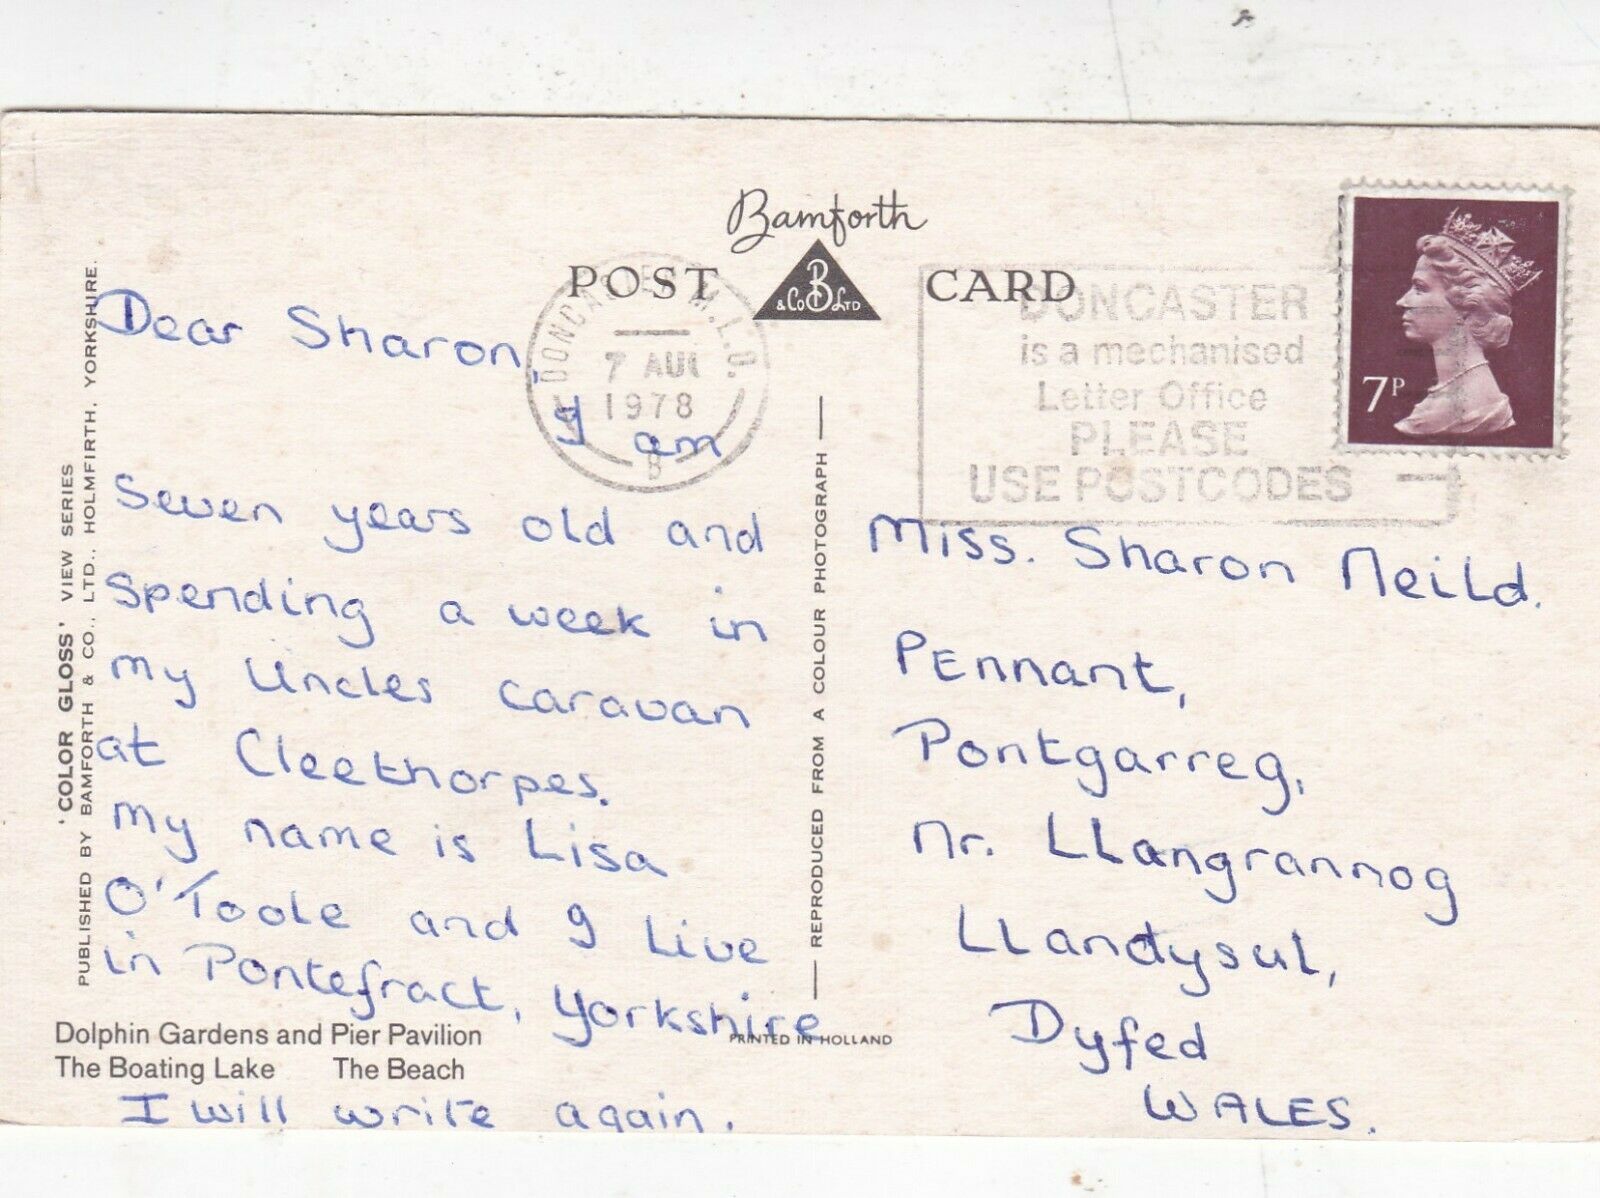 Bamforth
POST CARD
B
& Co LTD
DONCASTER M.L.O.
7 AUG
1978
B
DONCASTER
is a mechanised
Letter Office
PLEASE
USE POSTCODES
7P
Dear Sharon,
I am
Seven years old and
spending a week in
my Uncles caravan
at Cleethorpes.
my name is Lisa
O'Toole and I Live
in Pontefract, Yorkshire
I will write again.
Miss. Sharon Neild.
Pennant,
Pontgarreg,
Nr. LLangrannog
LLandysul,
Dyfed
WALES.
'COLOR GLOSS' VIEW SERIES
PUBLISHED BY BAMFORTH & CO., LTD., HOLMFIRTH, YORKSHIRE.
REPRODUCED FROM A COLOUR PHOTOGRAPH
Dolphin Gardens and Pier Pavilion
The Boating Lake The Beach
PRINTED IN HOLLAND